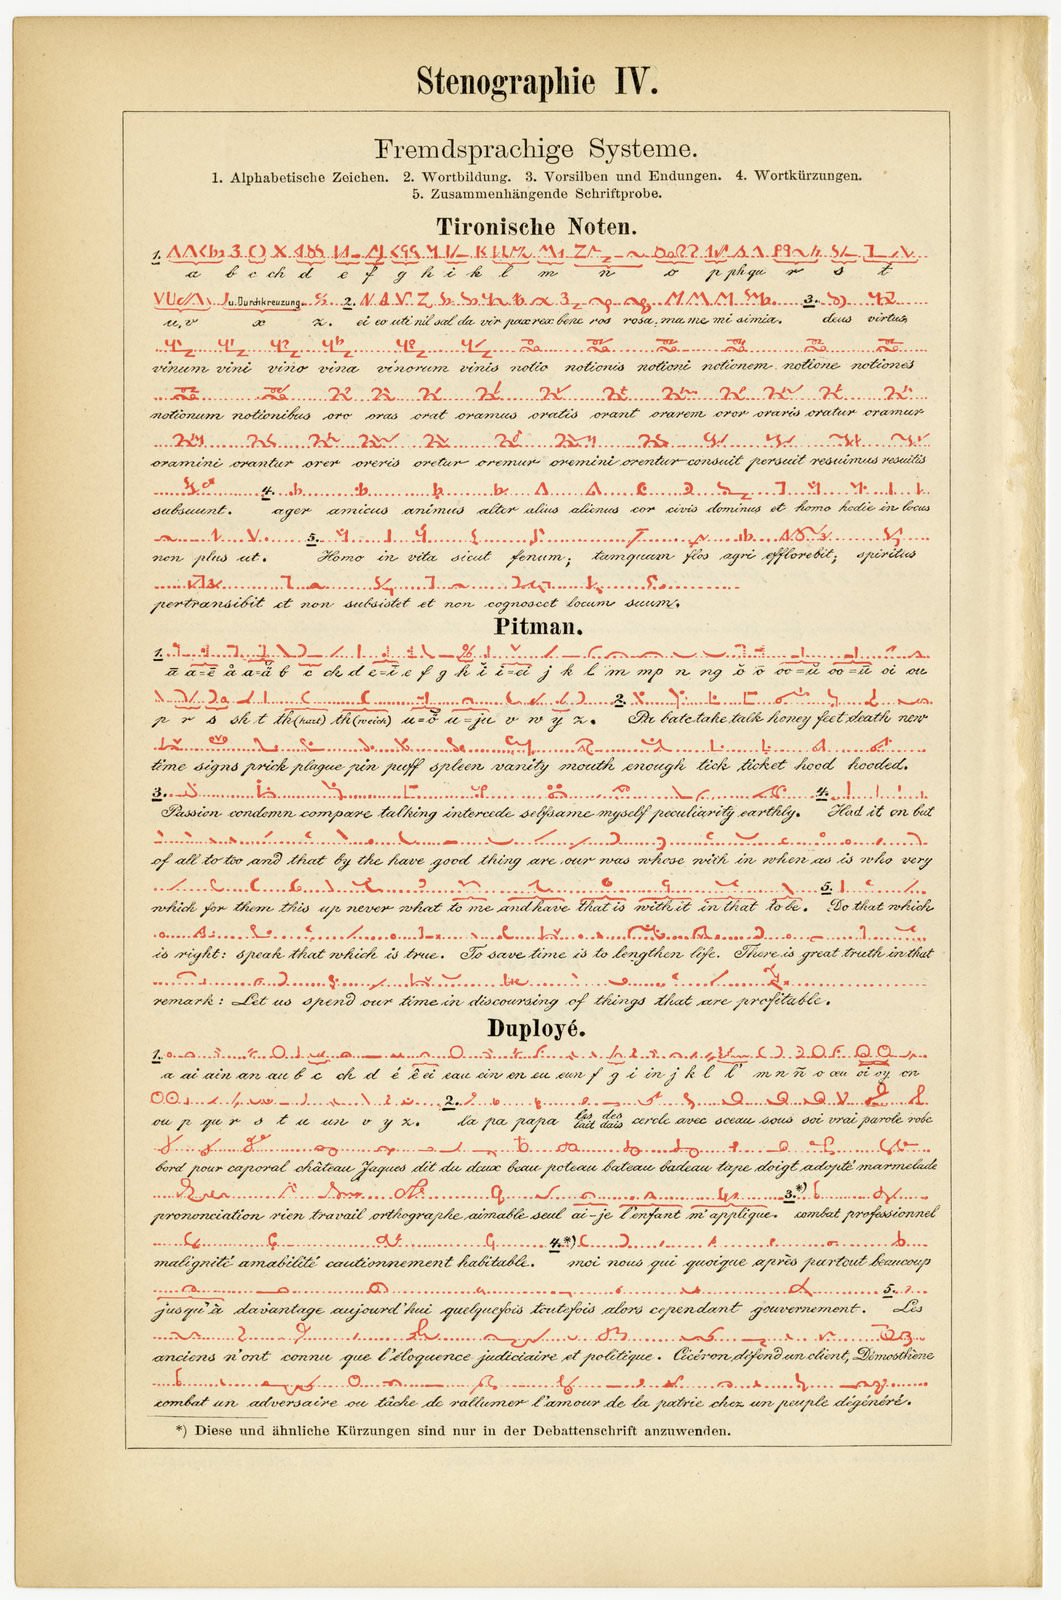 Stenographie IV.
Fremdsprachige Systeme.
1. Alphabetische Zeichen. 2. Wortbildung. 3. Vorsilben und Endungen. 4. Wortkürzungen.
5. Zusammenhängende Schriftprobe.
Tironische Noten.
1.
a b c ch d e f g h i k l m n o p ph qu r s t
u. Durchkreuzung. 2. 3.
u,v x z. ei eo uti nil sal da vir pax rex bene ros rosa. ma me mi simia. deus virtus
vinum vini vino vina vinorum vinis notio notionis notioni notionem notione notiones
notionum notionibus oro oras orat oramus oratis orant orarem oror oraris oratur oramur
oramini orantur orer oreris oretur oremur oremini orentur consuit persuit resuimus resuitis
4.
subsuunt. ager amicus animus alter alius alienus cor civis dominus et homo hodie in locus
5.
non plus ut. Homo in vita sicut fenum; tamquam flos agri efflorebit; spiritus
pertransibit et non subsistet et non cognoscet locum suum.
Pitman.
1.
ā a=ē å a=ä b c ch d e=i e f g h i i=ei j k l m mp n ng ŏ ō oo=ŭ oo=ū oi ou
2.
p r s sh t th(hart) th(weich) u=ŏ u=ju v w y z. Pa bate take talk honey feet death new
time signs prick plague pin puff spleen vanity mouth enough tick ticket hood hooded.
3. 4.
Passion condemn compare talking intercede selfsame myself peculiarity earthly. Had it on but
of all to too and that by the have good thing are our was whose with in when as is who very
5.
which for them this up never what to me and have that is with it in that to be. Do that which
is right: speak that which is true. To save time is to lengthen life. There is great truth in that
remark: Let us spend our time in discoursing of things that are profitable.
Duployé.
1.
a ai ain an au b c ch d é è ei eau ein en eu eun f g i in j k l l' m n ñ o œu oi oy on
2.
ou p qu r s t u un v y z. la pa papa les lait des dais cercle avec sceau sous soi vrai parole robe
bord pour caporal château Jaques dit du deux beau poteau bateau badeau tape doigt adopté marmelade
3.*)
prononciation rien travail orthographe aimable seul ai-je l'enfant m'applique. combat professionnel
4.*)
malignité amabilité cautionnement habitable. moi nous qui quoique après partout beaucoup
5.
jusqu'à davantage aujourd'hui quelquefois toutefois alors cependant gouvernement. Les
anciens n'ont connu que l'éloquence judiciaire et politique. Cicéron défend un client, Démosthène
combat un adversaire ou tâche de rallumer l'amour de la patrie chez un peuple dégénéré.
*) Diese und ähnliche Kürzungen sind nur in der Debattenschrift anzuwenden.